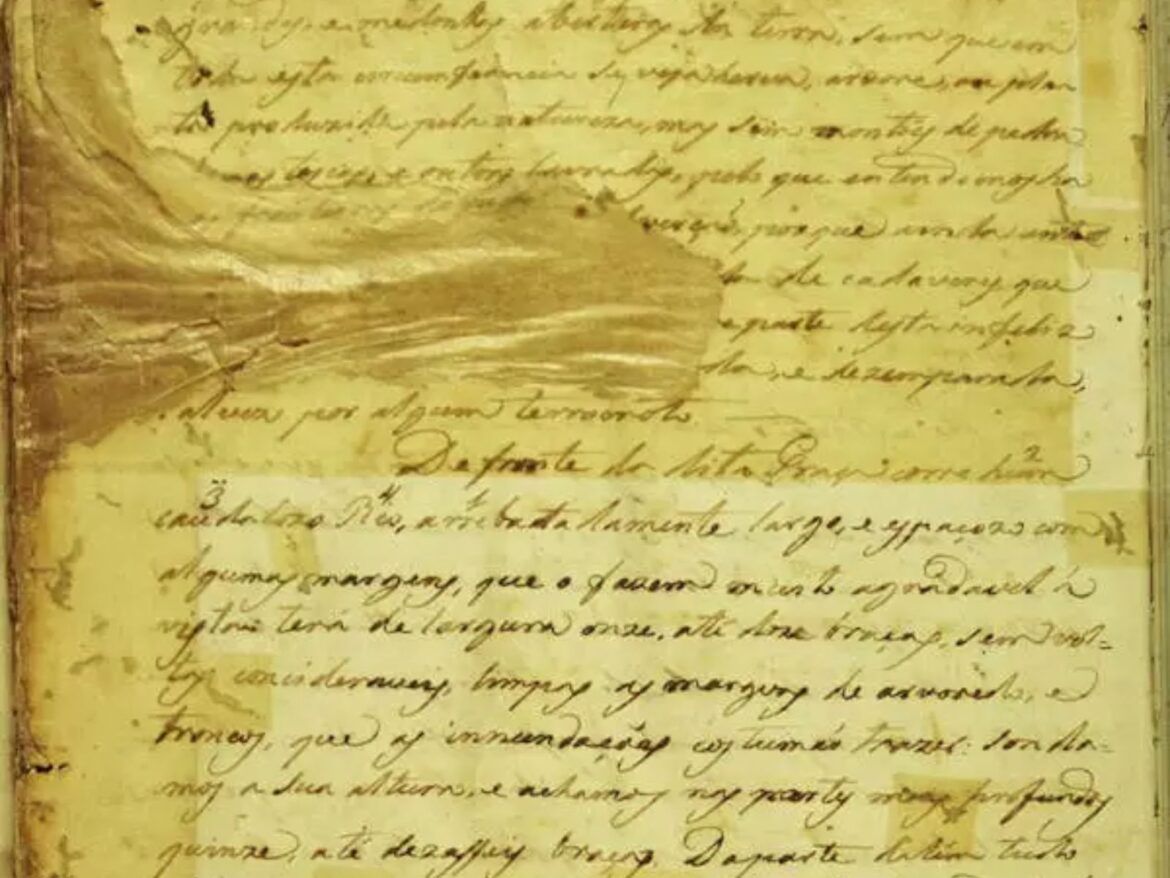 grandes, e medonhas aberturas da terra, sem que em
toda esta circunferencia se veja herva, arvore, ou plan
ta produzida pela natureza, mas sim montões de pedra
toscas, e outras lavradas, pelo que entendemos ha
verção, porque ainda entre
de cadaveres que
e parte desta infeliz
da, e dezemparada,
talvez por algum terremoto.
Defronte da dita Praça corre hum
caudaloso Rio, arrebatadamente largo, e espaçozo com
algumas margens, que o fazem muito agradavel á
vista: terá de largura onze, até doze braças, sem vol-
tas concideraveis, limpas as margens de arvoredo, e
troncos, que as innundações costumão trazer: sonda-
mos a sua altura, e achamos nas partes mais profundas
quinze, até dezasseis braças. Daparte dalém tudo